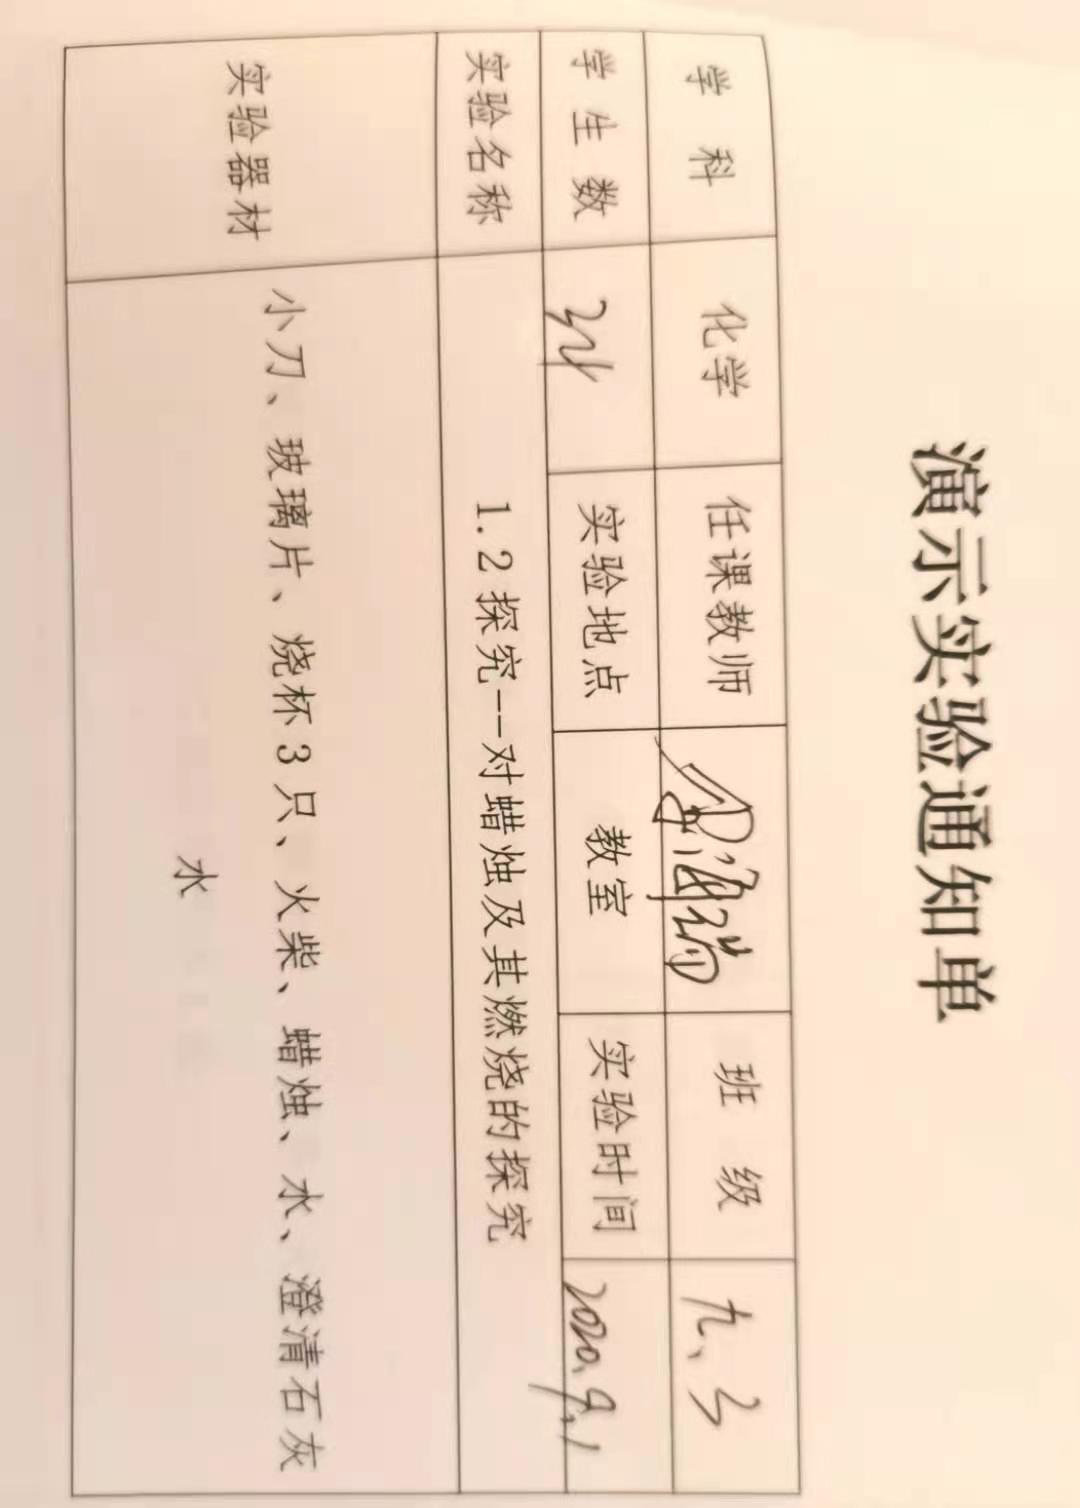 演示实验通知单
学 科 化学 任课教师 班 级 九、3
学 生 数 34 实验地点 教室 实验时间 2020.9.1
实验名称 1.2探究--对蜡烛及其燃烧的探究
实验器材 小刀、玻璃片、烧杯3只、火柴、蜡烛、水、澄清石灰
水